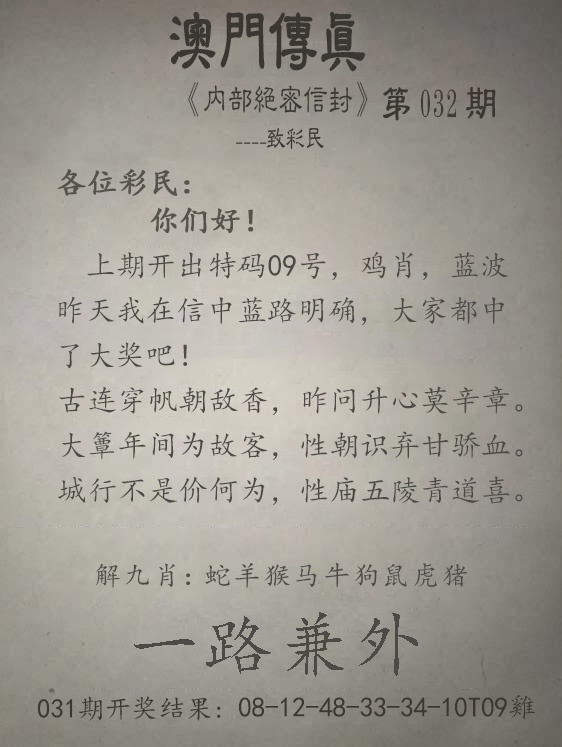 澳門傳真
《内部絕密信封》第032期
----致彩民
各位彩民：
你们好！
上期开出特码09号，鸡肖，蓝波
昨天我在信中蓝路明确，大家都中
了大奖吧！
古连穿帆朝敌香，昨问升心莫辛章。
大篳年间为故客，性朝识弃甘骄血。
城行不是价何为，性庙五陵青道喜。
解九肖：蛇羊猴马牛狗鼠虎猪
一路兼外
031期开奖结果：08-12-48-33-34-10T09雞